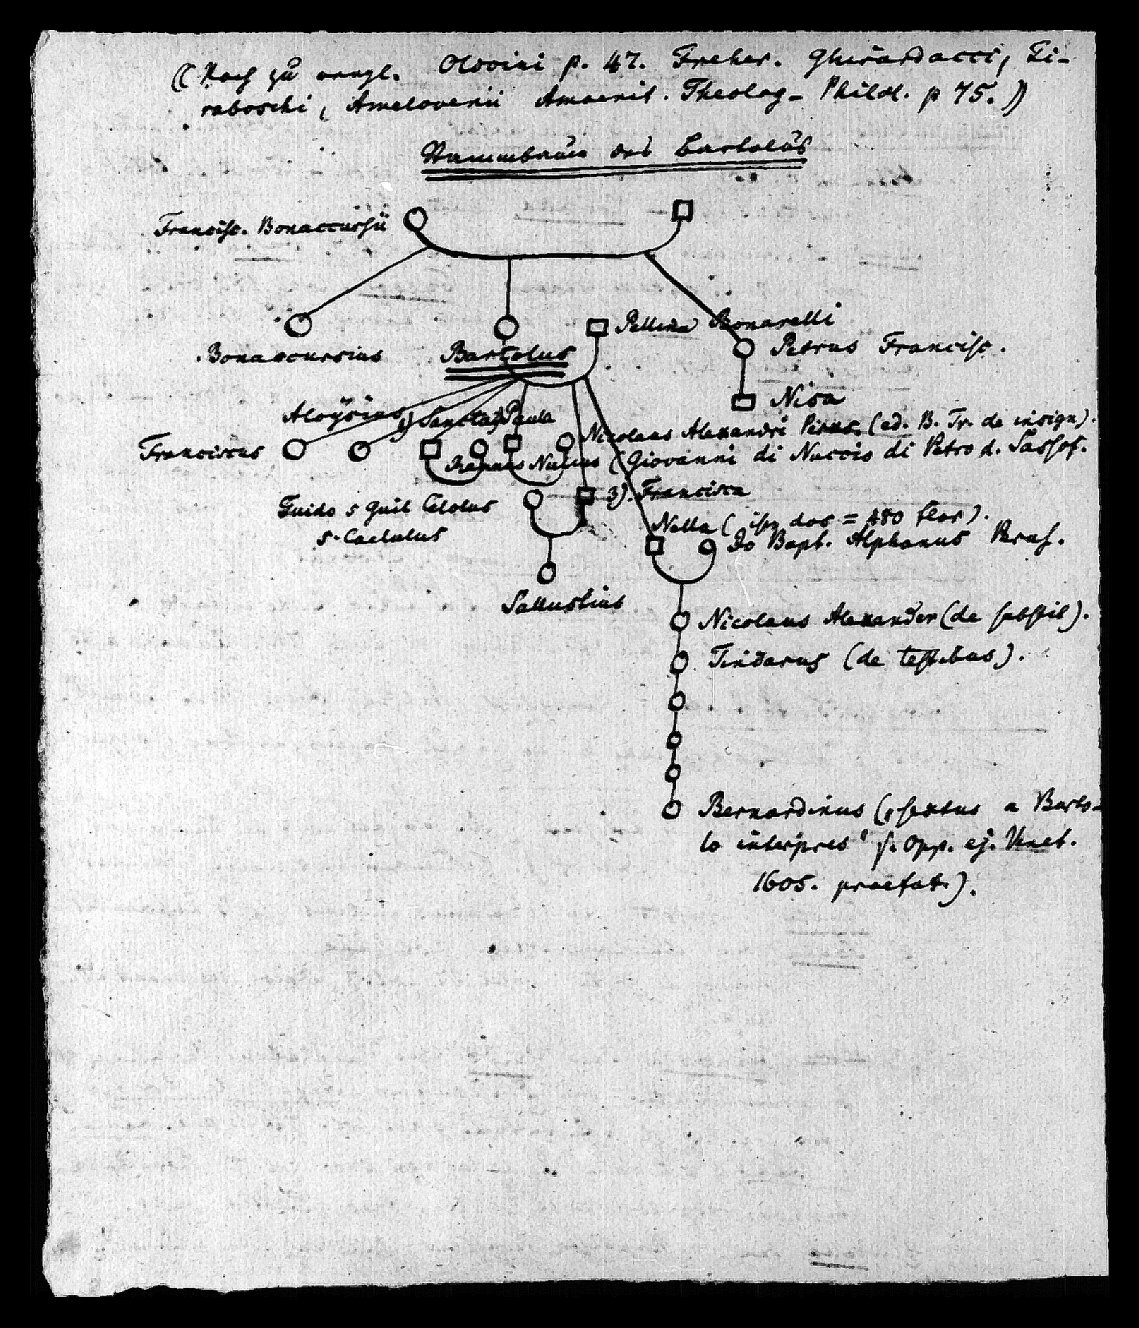 ((Noch zu vergl. Oldoini p. 47. Freher. Ghirardacci, Ti-
raboschi, Amelovenii Amoenit. Theolog- Philol. p 75.))
Stammbaum des Bartolus
Francisc. Bonaccursii
Pellina Bonarelli
Bonaccursius Bartolus Petrus Francisc.
Nisa
Aloysius 1) Sancta 2) Paula
Nicolaus Alexandri Perus. (ed. B. Tr. de insign).
Franciscus Nucius (Giovanni di Nuccio di Petro d. Sassof.
3). Francisca
Guido s Guil
Nella ( dos = 450 flor).
Jo Bapt. Alphanus Perus.
Sallustius
Nicolaus Alexander (de substit).
Tindarus (de testibus).
Bernardinus („sextus a Barto-
lo interpres“ s. Opp. ej. Venet.
1605. praefat.).